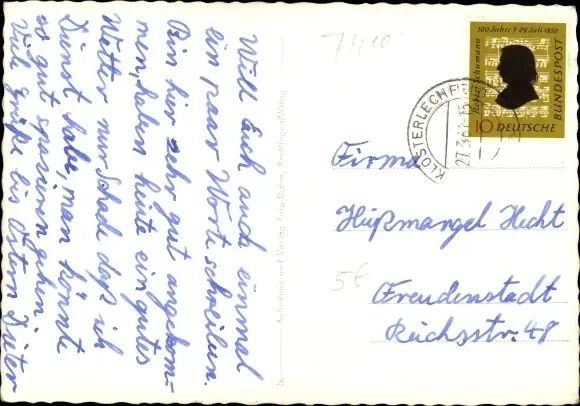 Will Euch auch einmal
ein paar Worte schreiben.
Bin hier sehr gut angekom-
men, haben heute ein gutes
Wetter nur Schade daß ich
Dienst habe, man könnte
so gut spazieren gehen.
Viele Grüße bis Ostern Dieter
Aufnahme und Verlag Fritz Dahm, Reutlingen/Wttbg
7410
100 Jahre † 29. Juli 1856
Robert Schumann
10 DEUTSCHE
BUNDESPOST
KLOSTERLECHF
27.3.61-15
Firma
Hüßmangel Hecht
5€
Freudenstadt
Reichsstr. 48